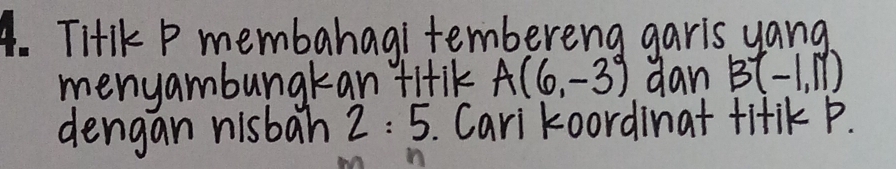 4. Titik P membahagi tembereng garis yang
menyambungkan titik A(6,-3) dan B(-1,11)
dengan nisbah 2 : 5. Cari koordinat titik P.
m n